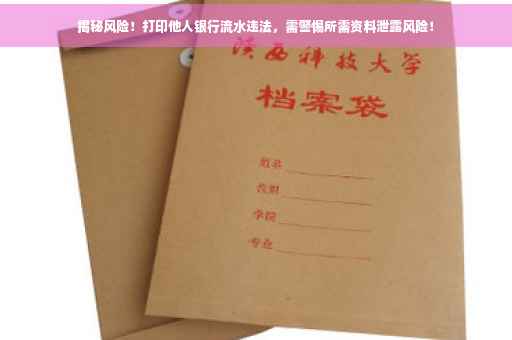 揭秘风险！打印他人银行流水违法，需警惕所需资料泄露风险！
陕西科技大学
档案袋
姓名
学院
专业